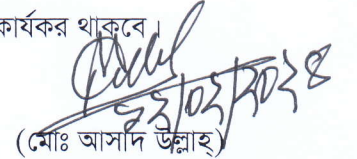 কার্যকর থাকবে।
২২/০২/২০২৪
(মোঃ আসাদ উল্লাহ)